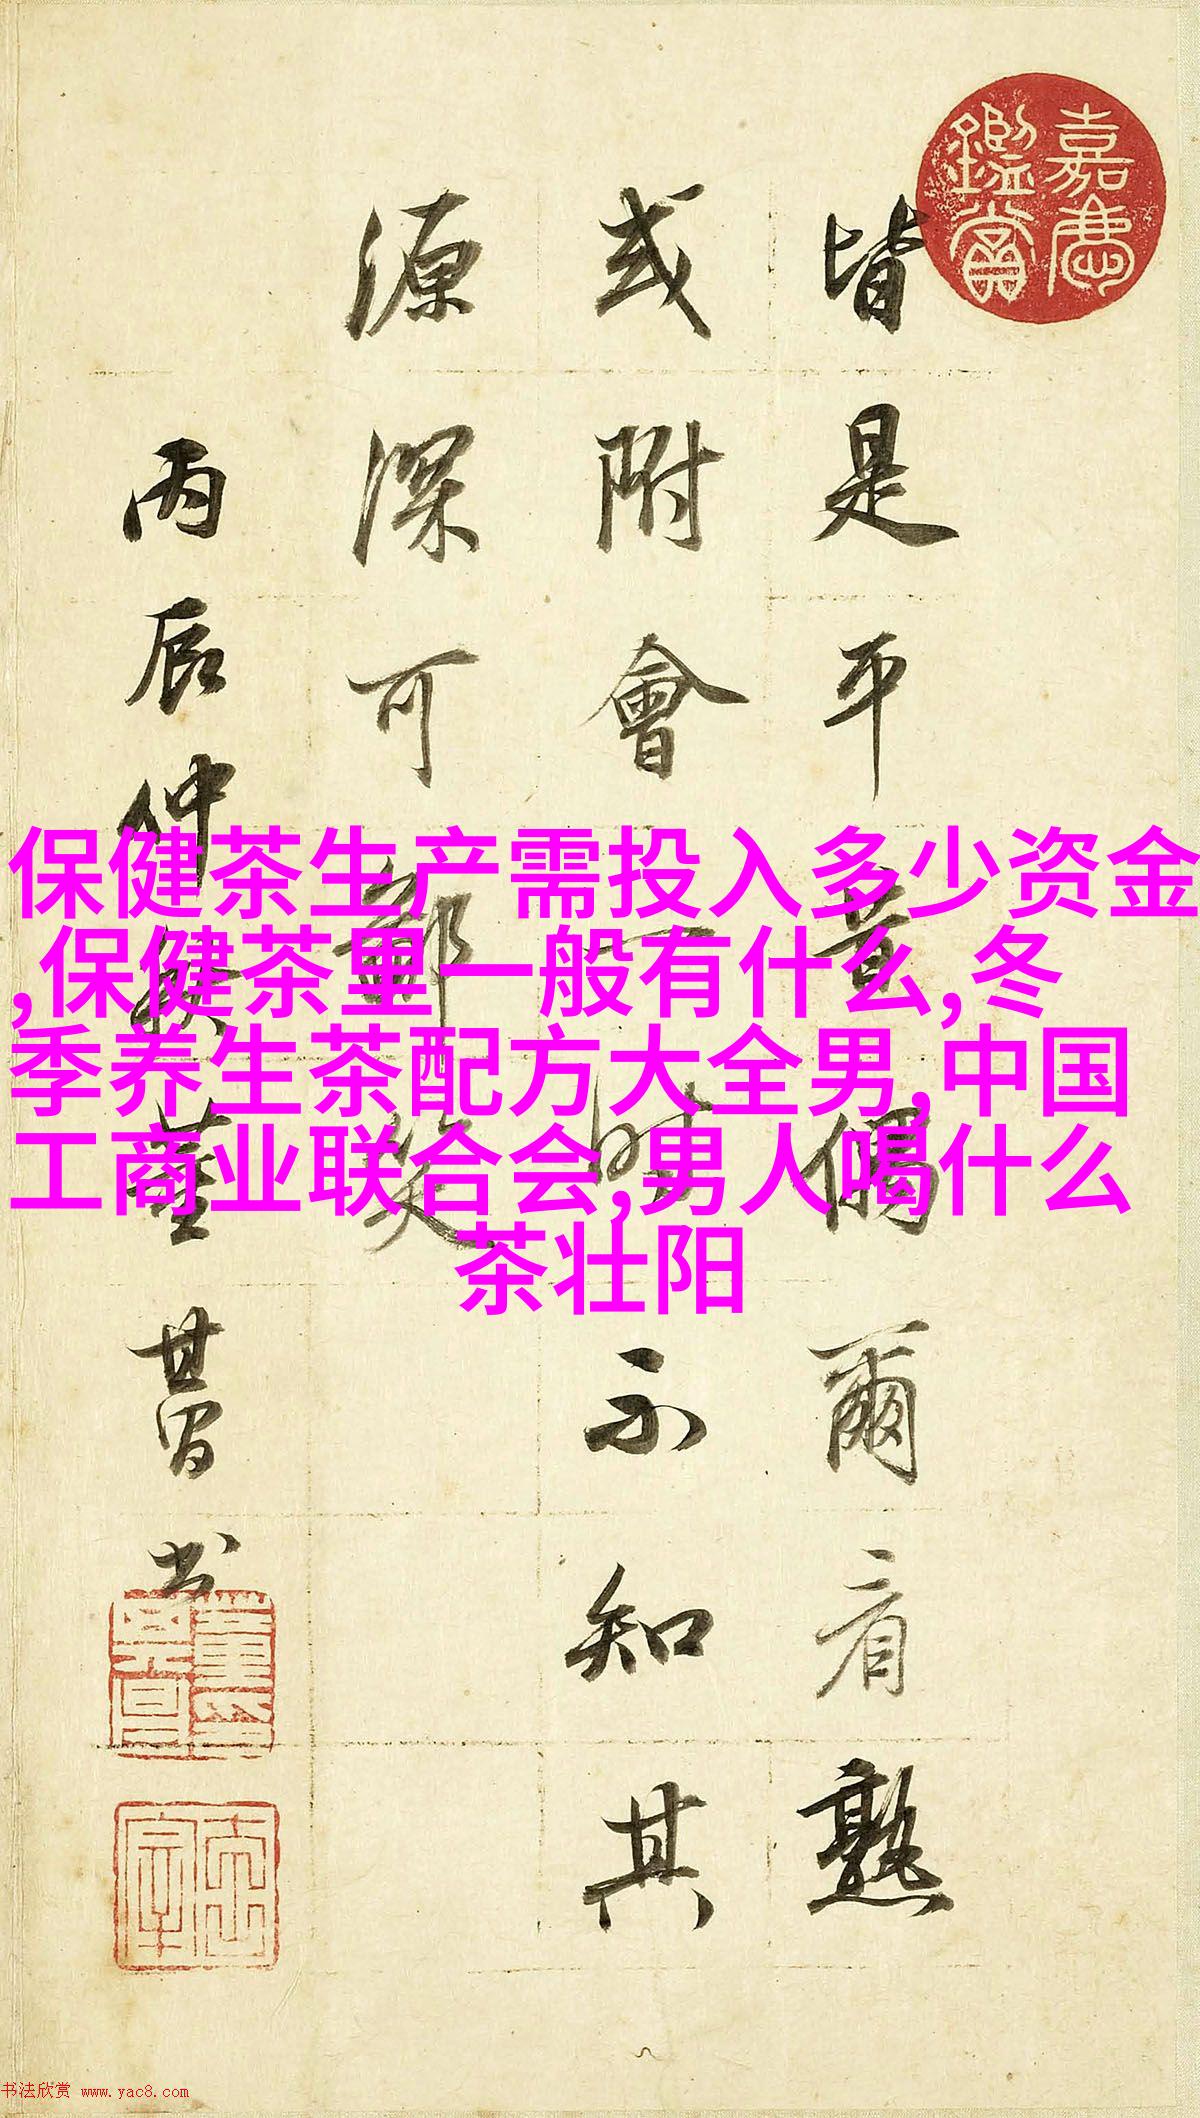 嘉慶
鑑賞
皆是平昔偶爾看熟
或附會一時不知其
源深可鄙笑
丙辰仲秋董其昌书
保健茶生产需投入多少资金
,保健茶里一般有什么,冬
季养生茶配方大全男,中国
工商业联合会,男人喝什么
茶壮阳
书法欣赏 www.yac8.com